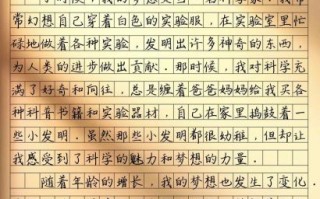 常幻想自己穿着白色的实验服，在实验室里忙
碌地做着各种实验，发明出许多神奇的东西，
为人类的进步做出贡献。那时候，我对科学充
满了好奇和向往，总是缠着爸爸妈妈给我买各
种科普书籍和实验器材，自己在家里捣鼓着一
些小发明。虽然那些小发明都很幼稚，但却让
我感受到了科学的魅力和梦想的力量。
随着年龄的增长，我的梦想也发生了变化。